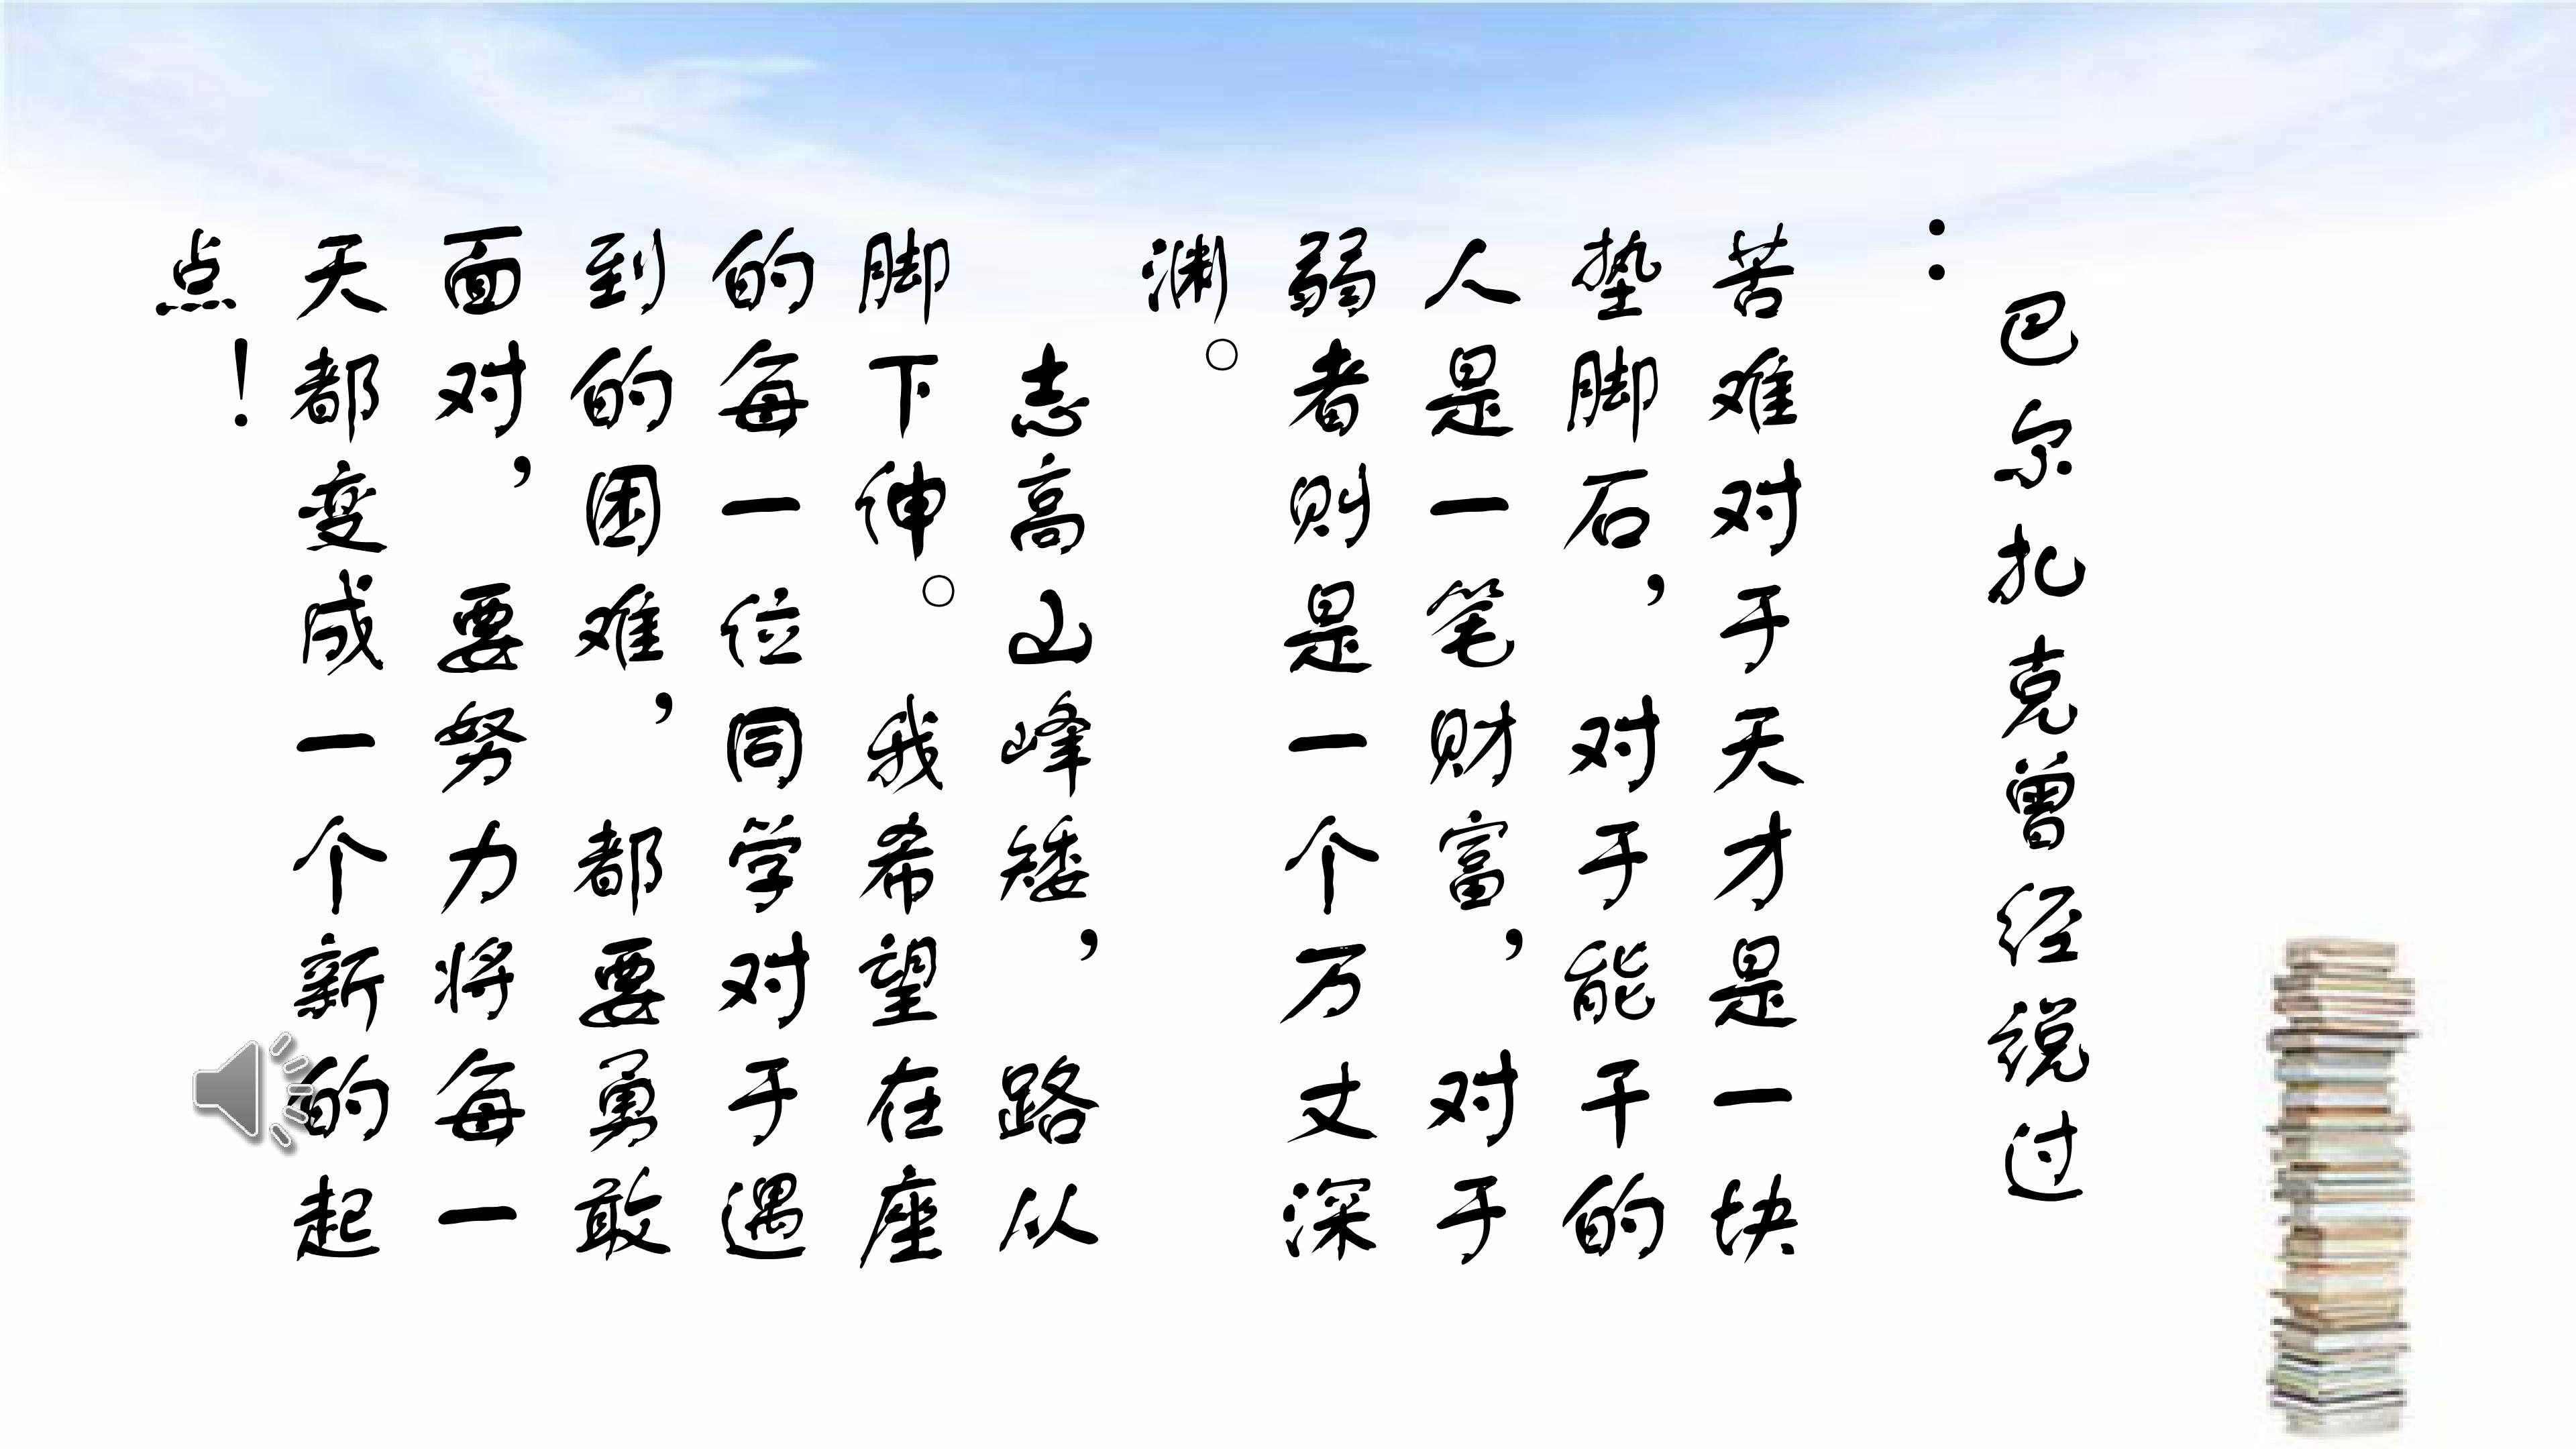 巴尔扎克曾经说过
：
苦难对于天才是一块
垫脚石，对于能干的
人是一笔财富，对于
弱者则是一个万丈深
渊。
志高山峰矮，路从
脚下伸。我希望在座
的每一位同学对于遇
到的困难，都要勇敢
面对，要努力将每一
天都变成一个新的起
点！